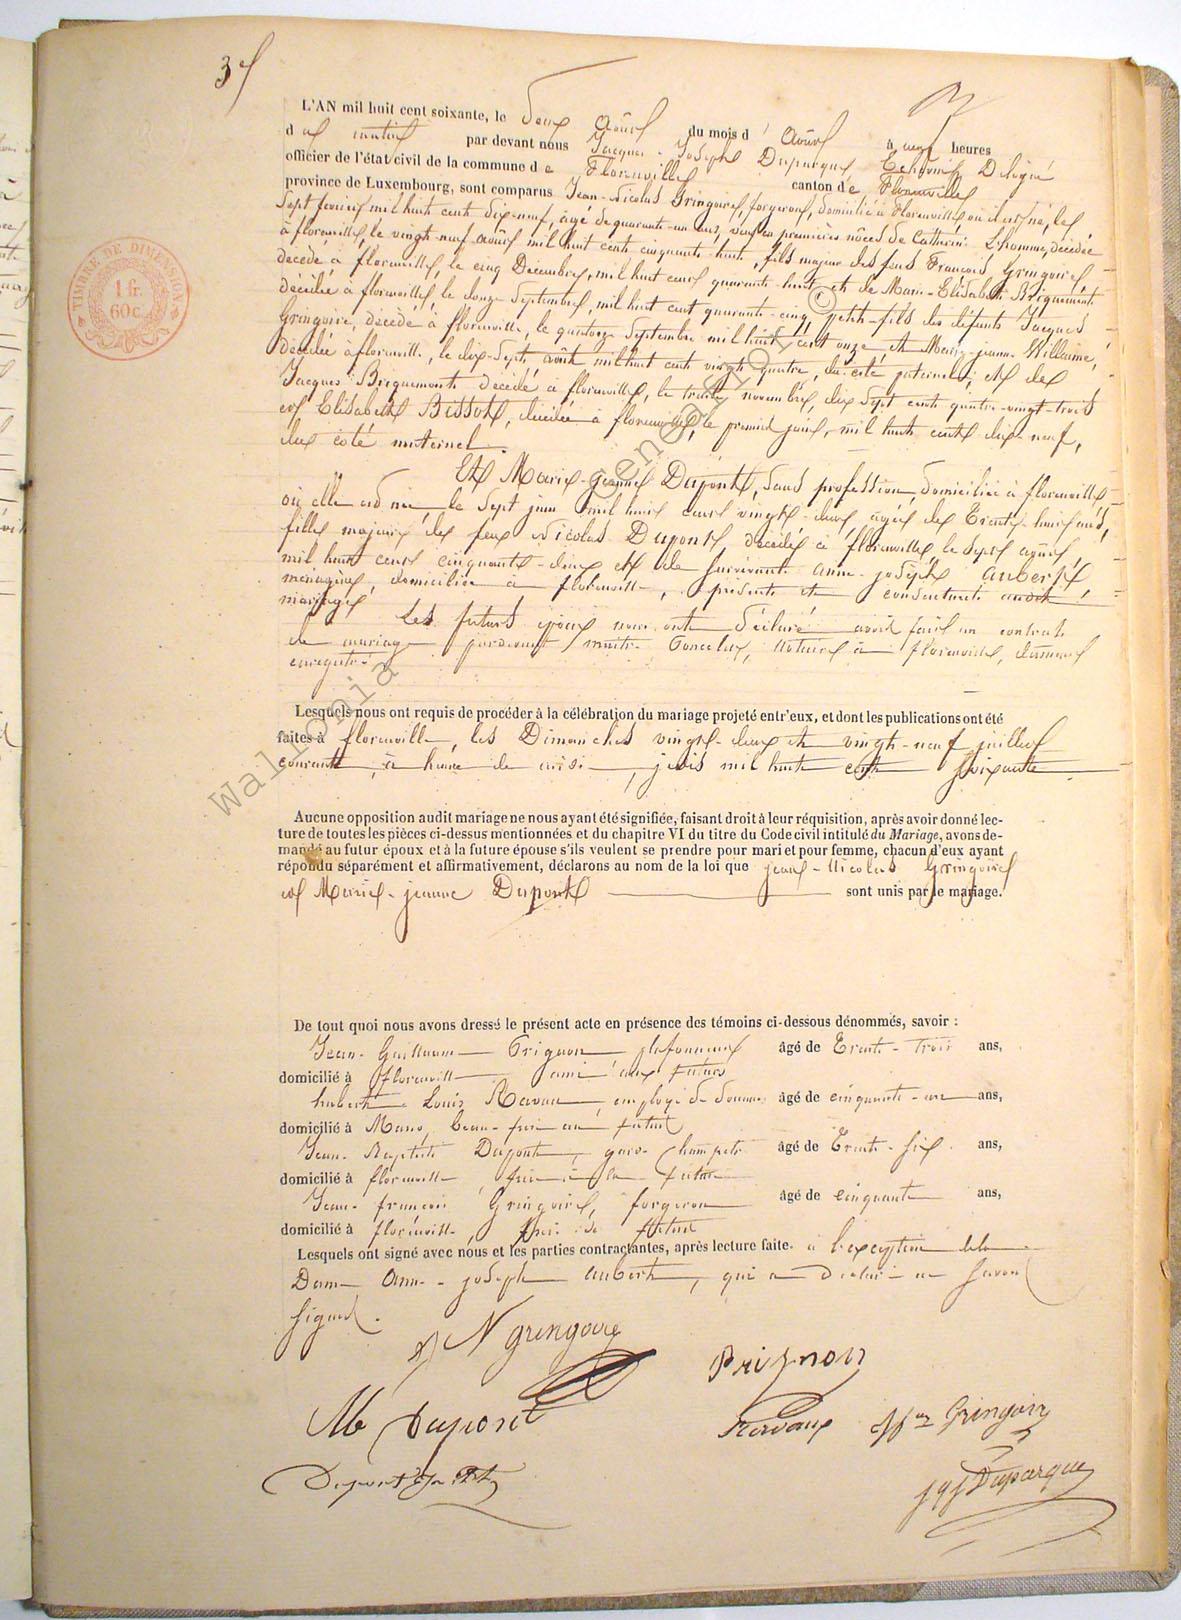 37
L'AN mil huit cent soixante, le deux août du mois d'août à neuf heures
du matin par devant nous Jacques-Joseph Duparque Echevin Délégué
officier de l'état civil de la commune de Florenville canton de Florenville
province de Luxembourg, sont comparus Jean-Nicolas Gringoire, forgeron, domicilié à Florenville où il est né, le
sept février mil huit cent dix-neuf, âgé de quarante-un ans, veuf en premières nôces de Catherine Lhomme, décédée
à florenville, le vingt-neuf août mil huit cent cinquante-huit, fils majeur des feus François Gringoire
décédé à florenville, le cinq Décembre, mil huit cent quarante-huit et de Marie-Elisabeth Briquemont
décédée à florenville, le douze Septembre, mil huit cent quarante-cinq, petit-fils des défunts Jacques
Gringoire, décédé à florenville, le quatorze Septembre mil huit cent onze et Marie-jeanne Willaime,
décédée à florenville, le dix-Sept août mil huit cent vingt quatre, du coté paternel, et de
Jacques Briquemont décédé à florenville, le trente novembre, dix sept cent quatre-vingt-trois
et Elisabeth Bissot, décédée à florenville, le premier juin, mil huit cent dix-neuf,
du coté maternel.
Et Marie-jeanne Dupont, sans profession, domiciliée à florenville
où elle est née, le Sept juin mil huit cent vingt-deux, agée de Trente-huit ans,
fille majeure de feu Nicolas Dupont, décédé à florenville, le Sept août,
mil huit cent cinquante-deux et de Survivante anne-joseph aubert
ménagère, domiciliée à florenville, présente et consentante audit
mariage. Les futurs époux nous ont déclaré avoir fait un contrat
de mariage pardevant maître notaire à florenville, dument
enregistré.
Lesquels nous ont requis de procéder à la célébration du mariage projeté entr'eux, et dont les publications ont été
faites à florenville, les Dimanches vingt-deux et vingt-neuf juillet
courant, à heure de midi, mil huit cent soixante.
Aucune opposition audit mariage ne nous ayant été signifiée, faisant droit à leur réquisition, après avoir donné lec-
ture de toutes les pièces ci-dessus mentionnées et du chapitre VI du titre du Code civil intitulé du Mariage, avons de-
mandé au futur époux et à la future épouse s'ils veulent se prendre pour mari et pour femme, chacun d'eux ayant
répondu séparément et affirmativement, déclarons au nom de la loi que jean-Nicolas Gringoire
et Marie-jeanne Dupont sont unis par le mariage.
De tout quoi nous avons dressé le présent acte en présence des témoins ci-dessous dénommés, savoir :
Jean-Guillaume Prignon plafonneur âgé de Trente-Trois ans,
domicilié à florenville ami aux futurs
hubert Louis Ravaux, employé de douane âgé de cinquante-un ans,
domicilié à beau-frère au futur
Jean-Baptiste Dupont, garde champêtre âgé de Trente-six ans,
domicilié à florenville, frère à la future
Jean-françois Gringoire, forgeron âgé de cinquante ans,
domicilié à florenville, frère de futur
Lesquels ont signé avec nous et les parties contractantes, après lecture faite. à l'exception de la
Dame Anne-joseph aubert, qui a declaré ne Savoir
Signer.
N gringoire
Prignon
M Dupont
Ravaux
Gringoire
Dupont
J J Duparque
TIMBRE DE DIMENSION
1 fr.
60 c.
Wallonia © Geneanet